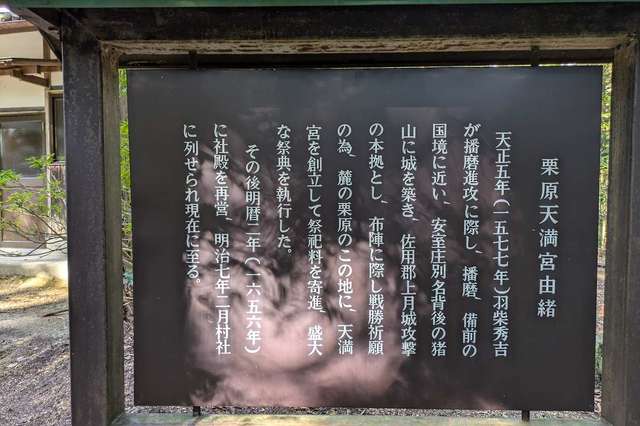 栗原天満宮由緒
天正五年(一五七七年)羽柴秀吉
が播磨進攻に際し、播磨、備前の
国境に近い、安室庄別名背後の猪
山に城を築き、佐用郡上月城攻撃
の本拠とし、布陣に際し戦勝祈願
の為、麓の栗原のこの地に、天満
宮を創立して祭祀料を寄進、盛大
な祭典を執行した。
その後明暦二年(一六五六年)
に社殿を再営、明治七年二月村社
に列せられ現在に至る。